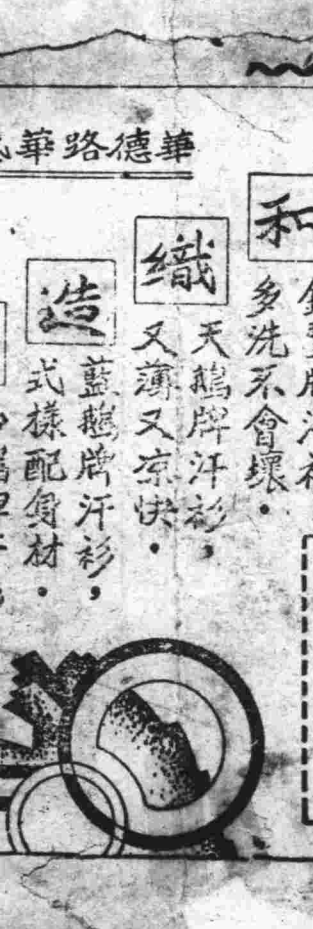 華德路華
和
多洗不會壞．
織
天鵝牌汗衫，
又薄又凉快．
造
藍鵝牌汗衫，
式樣配身材．